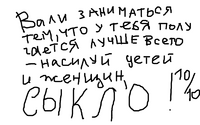 Вали заниматься
тем, что у тебя полу
чается лучше всего
- насилуй детей
и женщин,
СЫКЛО! 10/10